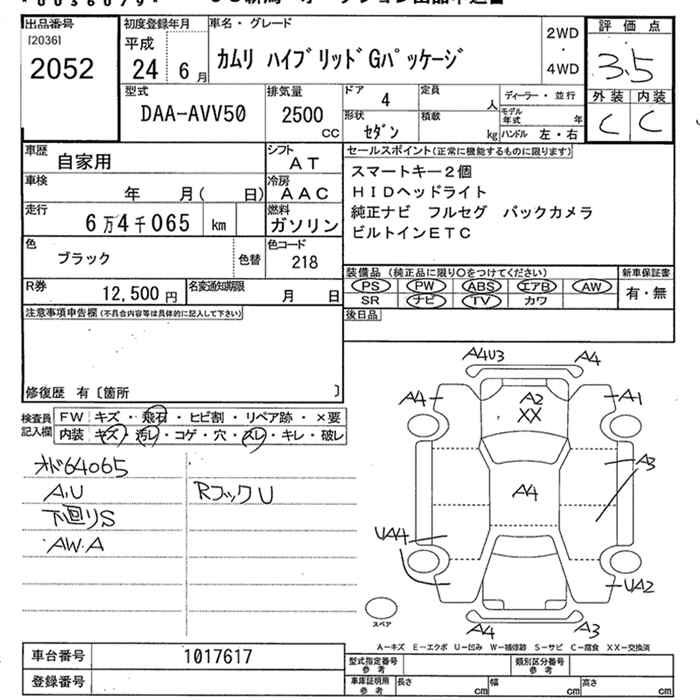 出品番号
[2036]
2052
初度登録年月
平成
24 6 月
車名・グレード
カムリ ハイブリッドGパッケージ
2WD
・
4WD
評価点
3.5
外装 内装
C C
型式
DAA-AVV50
排気量
2500
CC
ドア 4
定員 人
形状
セダン
積載 kg
ディーラー・並行
モデル年式 年
ハンドル 左・右
車歴
自家用
シフト
AT
車検
年 月( 日)
冷房
AAC
走行
6万4千065 km
燃料
ガソリン
色
ブラック
色替
色コード
218
R券
12,500 円
名変通知期限
月 日
セールスポイント(正常に機能するものに限ります)
スマートキー2個
HIDヘッドライト
純正ナビ フルセグ バックカメラ
ビルトインETC
装備品(純正品に限り○をつけてください)
PS PW ABS エアB AW
SR ナビ TV カワ
新車保証書
有・無
後日品
注意事項申告欄(不具合内容等は具体的に記入して下さい)
修復歴 有〔箇所 〕
検査員
記入欄
FW キズ・飛石・ヒビ割・リペア跡・×要
内装 キズ・汚レ・コゲ・穴・スレ・キレ・破レ
オド64065
A,U
Rフック U
下廻りS
AW.A
A4U3
A4
A4
A1
A2
XX
A3
A4
UA4
UA2
A4
A3
スペア
A－キズ E－エクボ U－凹み W－補修跡 S－サビ C－腐食 XX－交換済
車台番号
1017617
登録番号
型式指定番号
参考
類別区分番号
参考
車庫証明用
参考
長さ cm
幅 cm
高さ cm